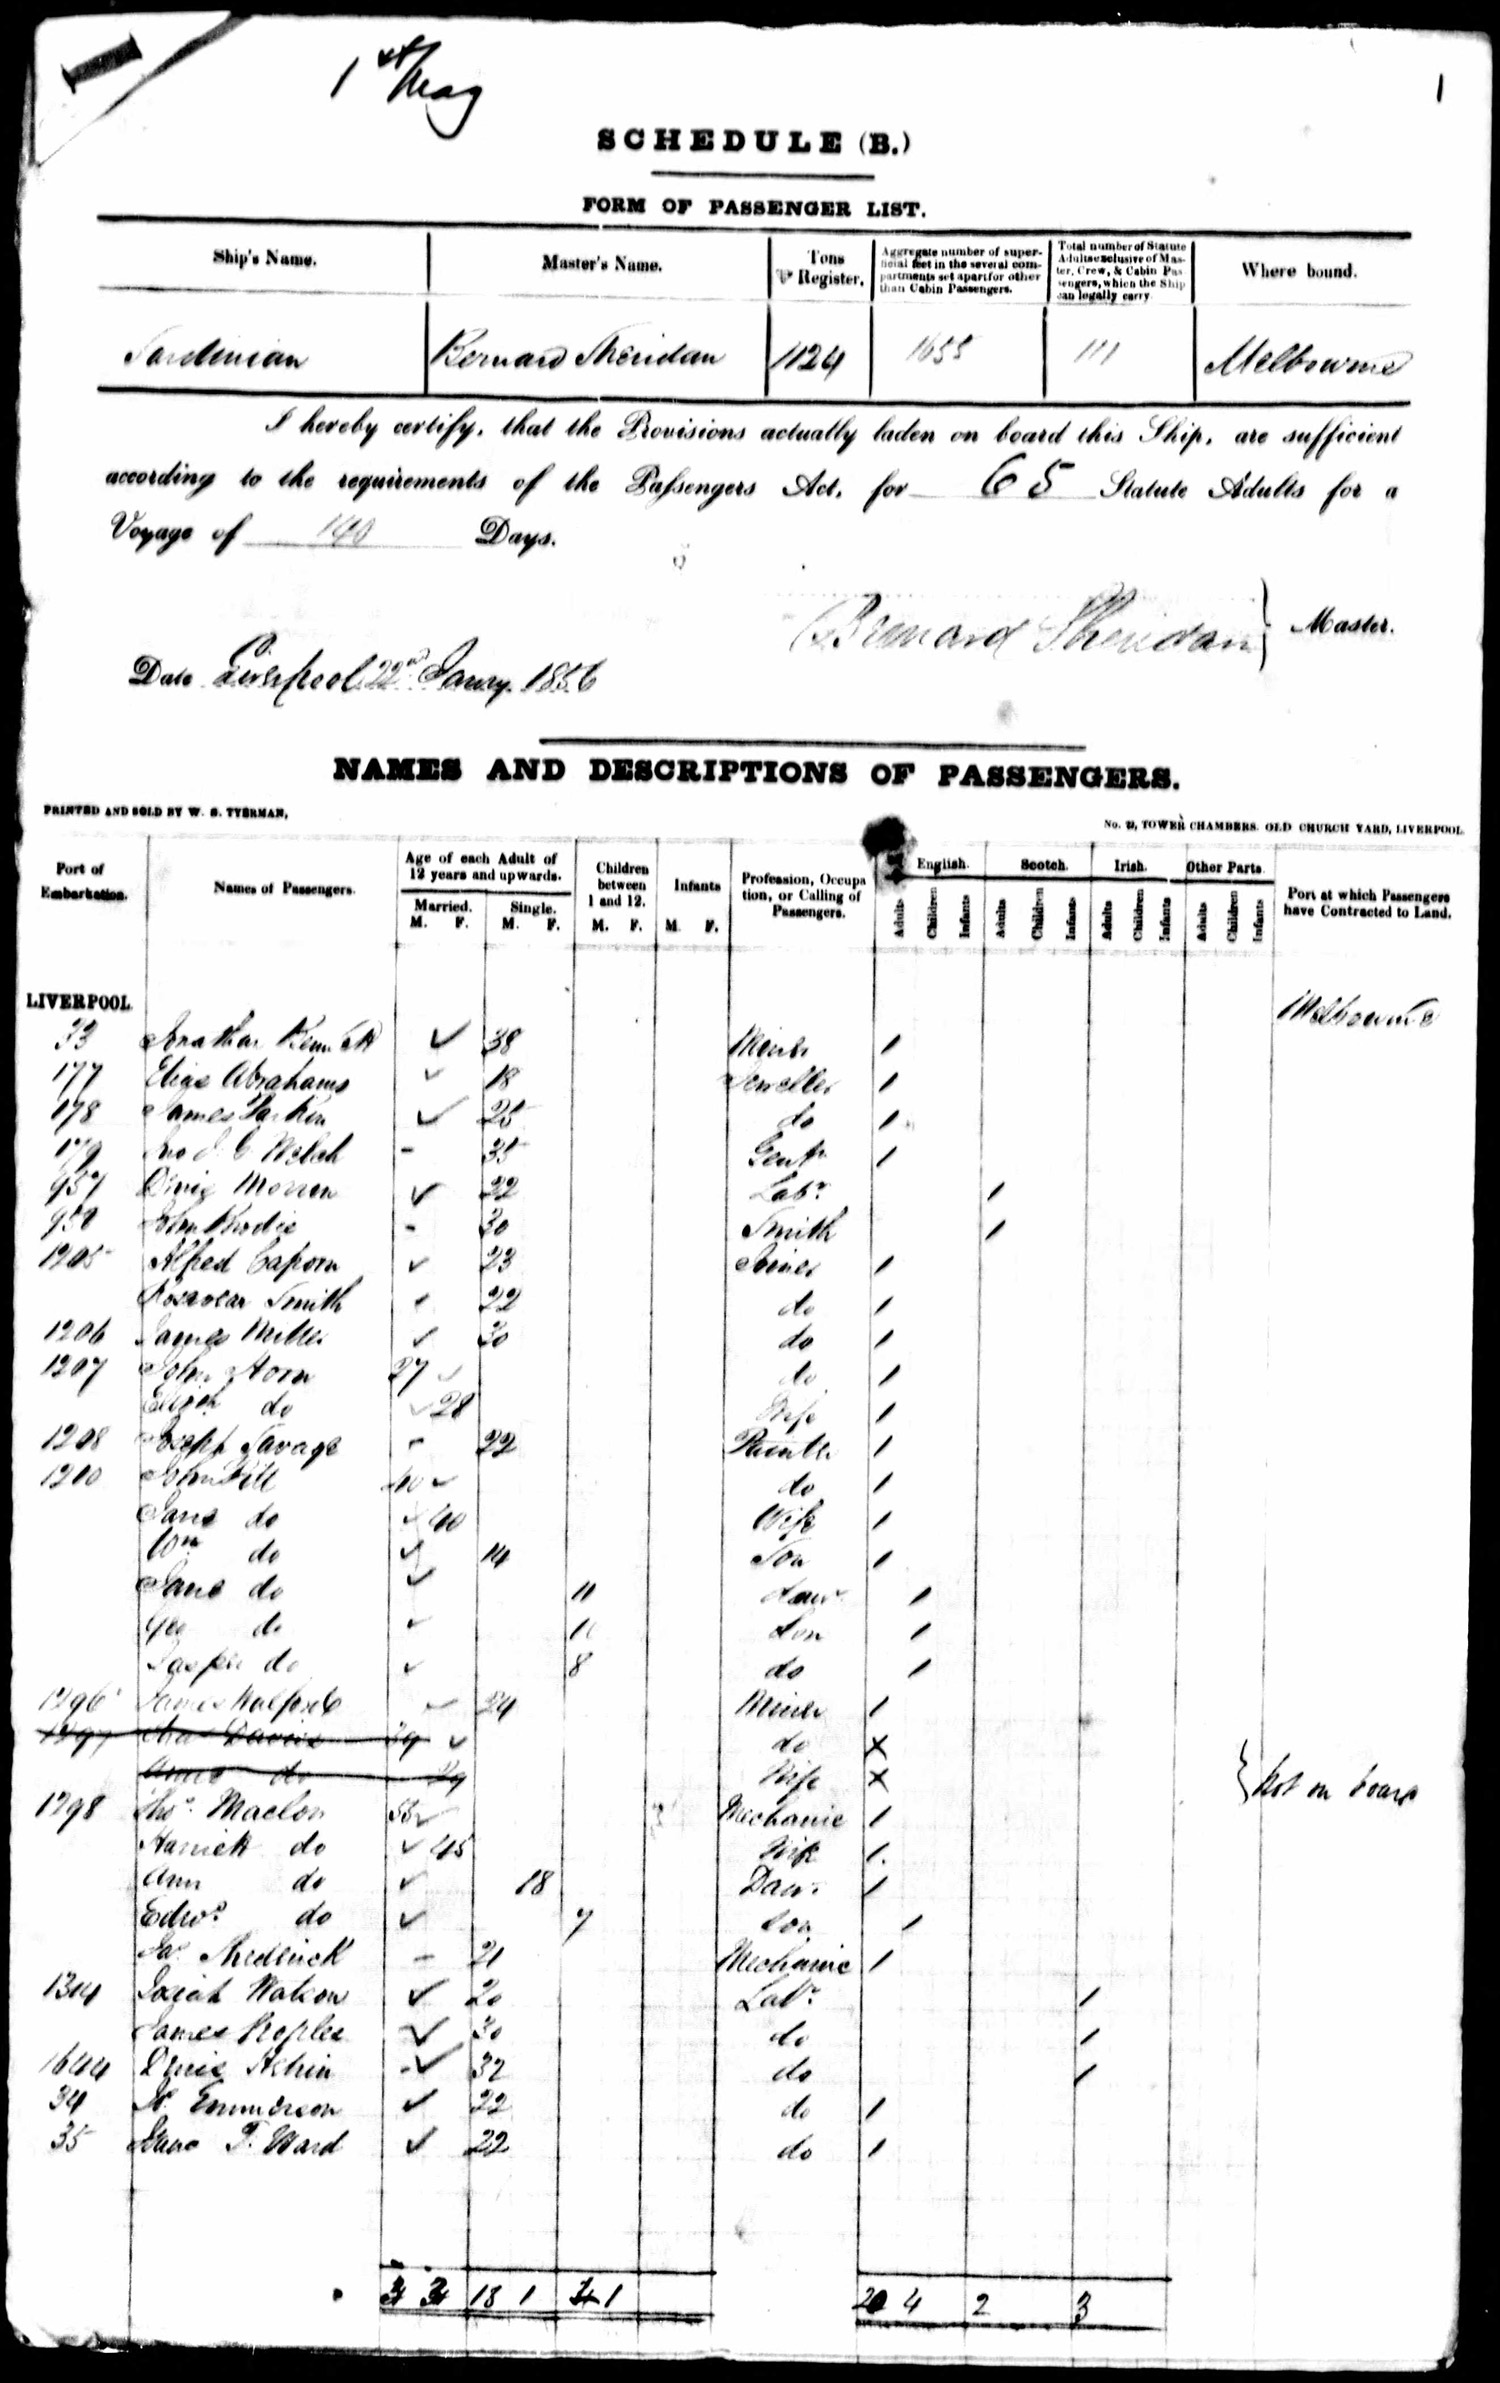 1st May
1
SCHEDULE (B.)
FORM OF PASSENGER LIST.
Ship's Name. Master's Name. Tons Register. Aggregate number of superficial feet in the several compartments set apart for other than Cabin Passengers. Total number of Statute Adults exclusive of Master, Crew, & Cabin Passengers, which the Ship can legally carry Where bound.
Sardinian Bernard Sheridan 1124 1655 111 Melbourne
I hereby certify, that the Provisions actually laden on board this Ship, are sufficient
according to the requirements of the Passengers Act, for 65 Statute Adults for a
Voyage of 140 Days.
Bernard Sheridan } Master.
Date Liverpool 22nd Jany. 1856
NAMES AND DESCRIPTIONS OF PASSENGERS.
PRINTED AND SOLD BY W. S. TYERMAN, No. 2, TOWER CHAMBERS. OLD CHURCH YARD, LIVERPOOL
Port of Embarkation. Names of Passengers. Age of each Adult of 12 years and upwards. Children between 1 and 12. Infants Profession, Occupation, or Calling of Passengers. English. Scotch. Irish. Other Parts. Port at which Passengers have Contracted to Land.
Married. Single.
M. F. M. F. M. F. M. F. Adults Children Infants Adults Children Infants Adults Children Infants Adults Children Infants
LIVERPOOL Melbourne
33 Jonathan 38 Miner 1
177 Eliza Abrahams 18 Jeweller 1
178 James Parkin 25 do 1
179 Jno J. C Welch 35 Gentn 1
957 Denis Morren 22 Labr. 1
958 John Brodie 30 Smith 1
1205 Alfred Caporn 23 Joiner 1
Smith 22 do 1
1206 James Miller 30 do 1
1207 John Horn 27 do 1
Elizth do 28 Wife 1
1208 Joseph Savage 22 Painter 1
1200 John 40 do 1
Jane do 40 Wife 1
Wm do 14 Son 1
Jane do 11 Daur 1
Geo do 11 Son 1
Jasper do 8 do 1
1296 James 24 Miner 1
1297 Chas Davies 29 do X
Anne do 29 Wife X } Not on board
1298 Thos. Maclon 55 Mechanic 1
Harriett do 45 Wife 1
Ann do 18 Daur. 1
Edwd. do 7 Son 1
Jas. 21 Mechanic 1
1314 Josiah Watson 20 Labr. 1
James Peoples 30 do 1
1644 Denis 32 do 1
34 H. Emmerson 22 do 1
35 T. Ward 22 do 1
3 3 18 1 1 20 4 2 3